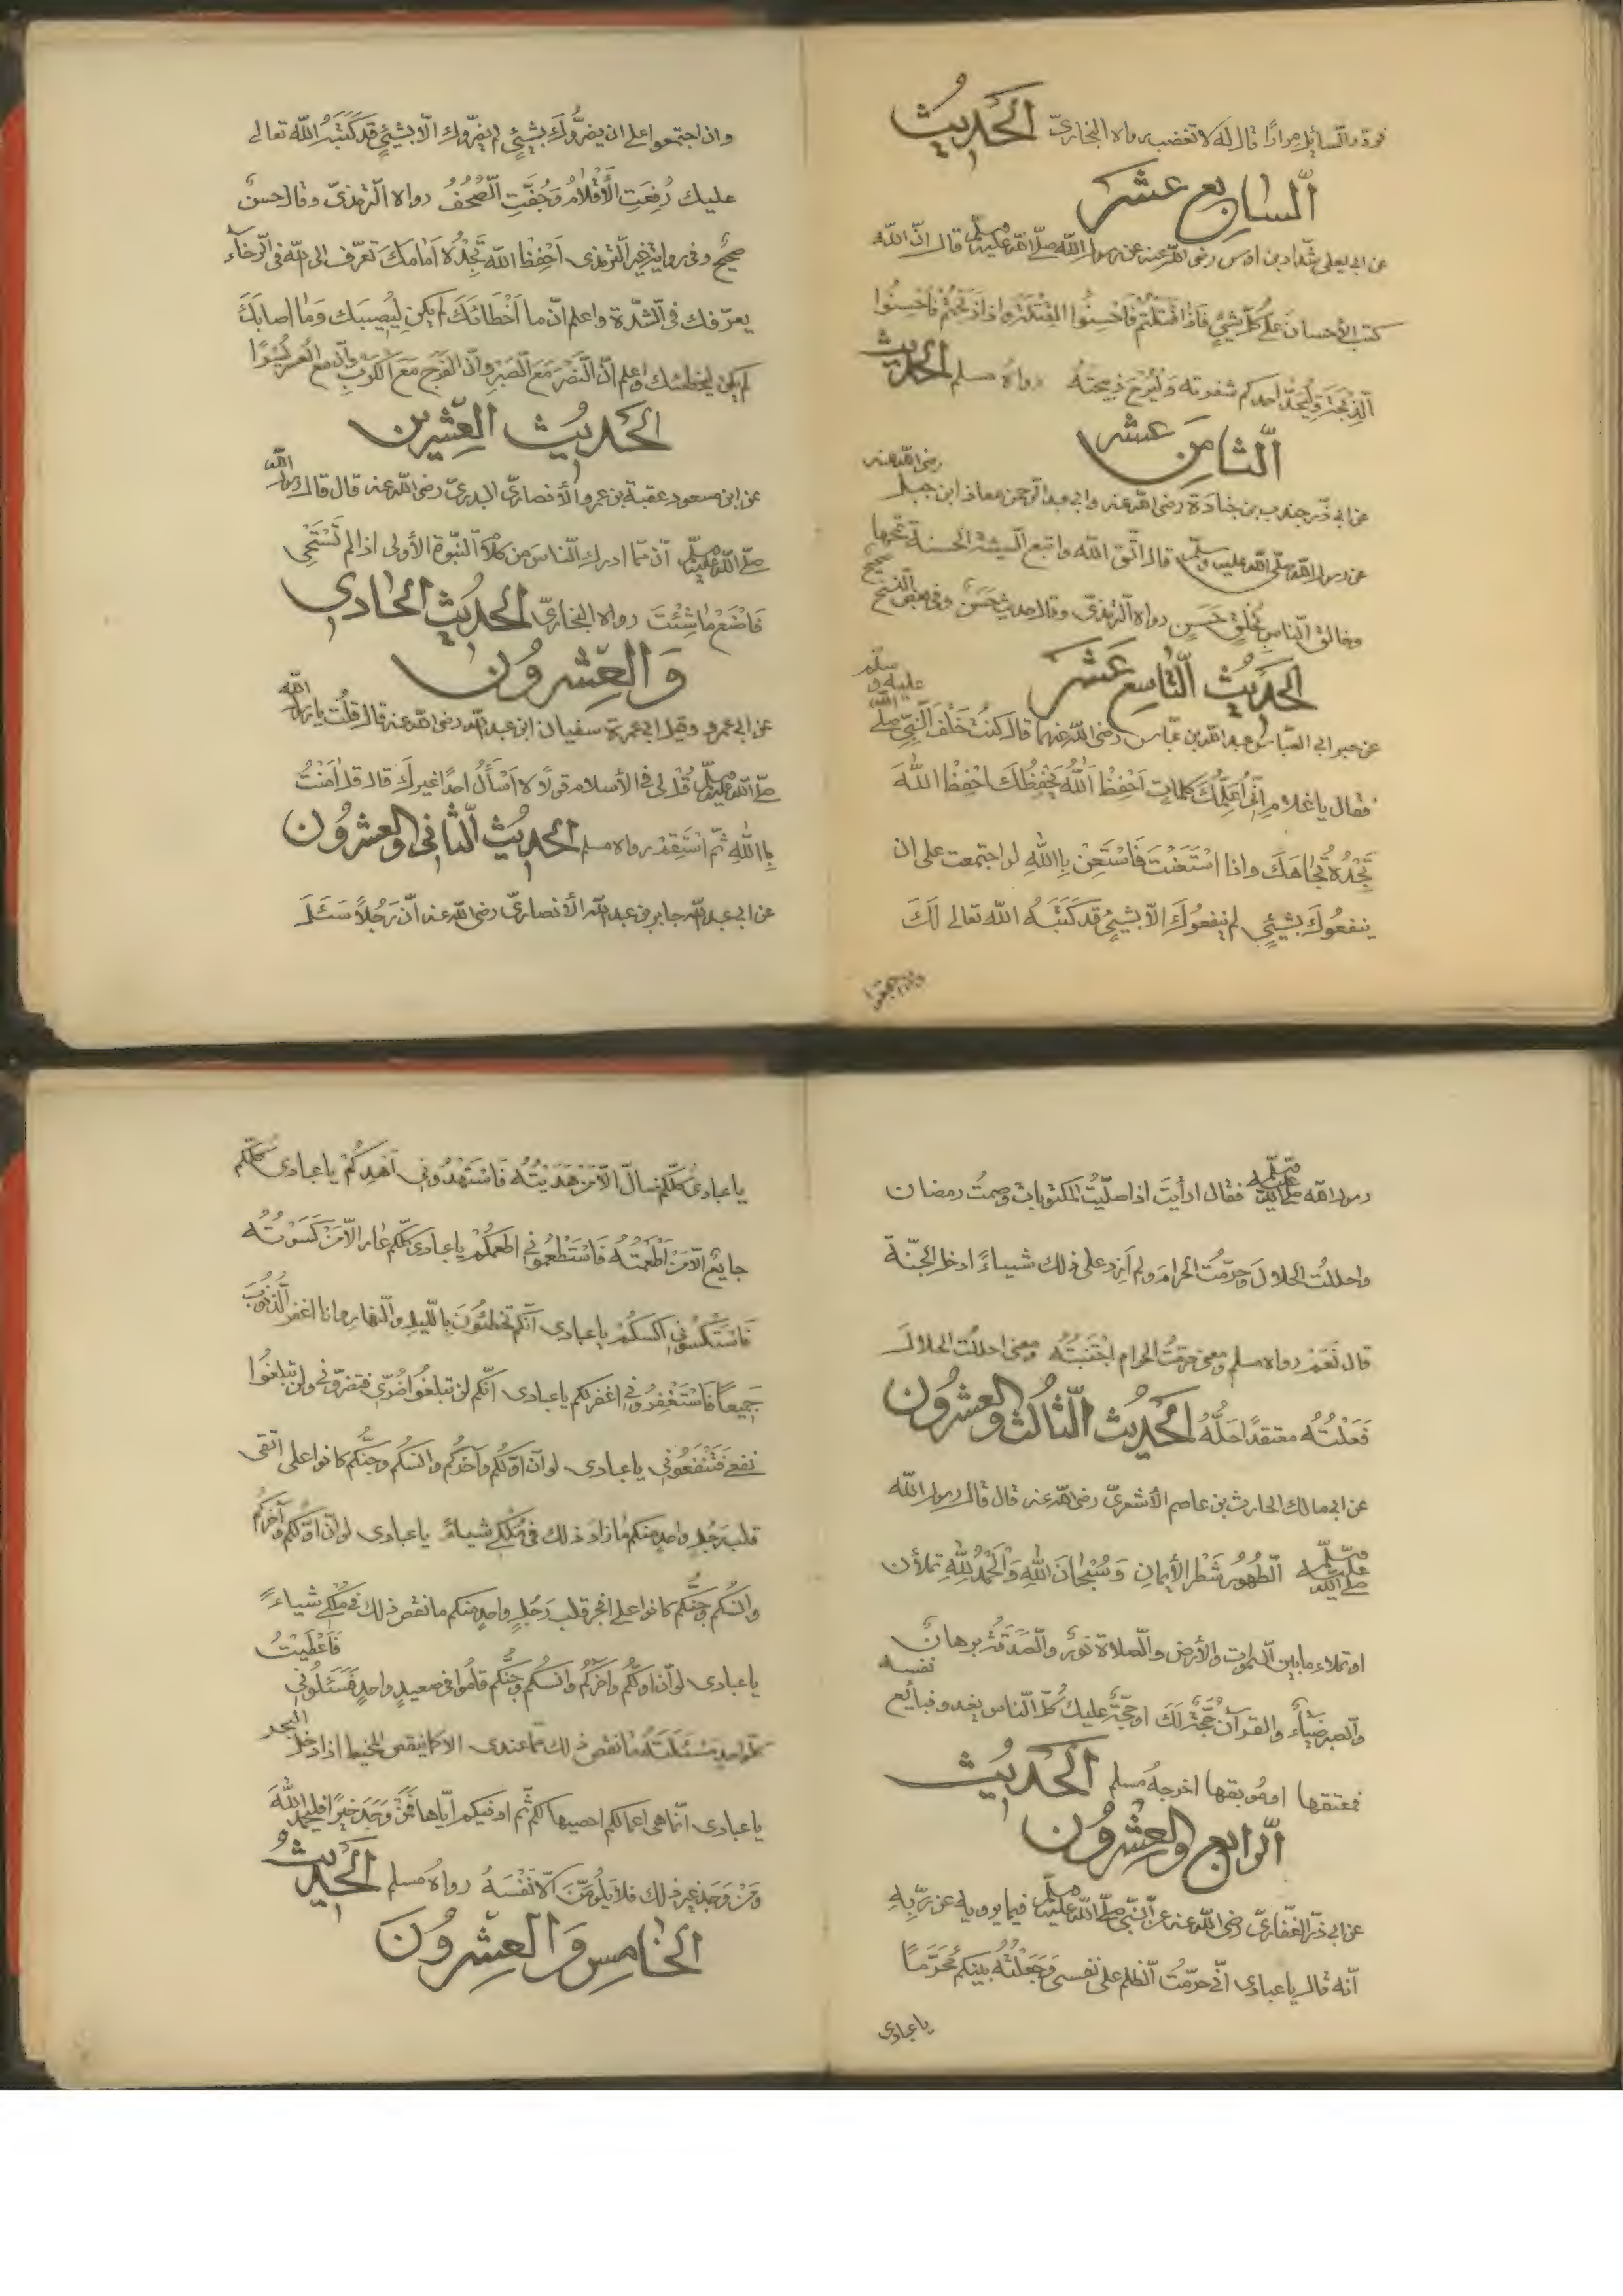 فردد السائل مرارًا قال له لا تغضب رواه البخاريّ الحديث
السابع عشر
عن ابي يعلى شدّاد بن اوس رضى الله عنه عن رسول الله صلّى الله عليه وسلّم قال انّ الله
كتب الأحسان على كلّ شيئٍ فَاِذَا قَتَلتُم فَاَحْسِنُوا القِتْلَة وَاِذا ذَبَحْتُم فَاَحْسِنُوا
الذِّبْحَةَ وَلْيُحِدَّ احدكم شفرته وَلْيُرِحْ ذبيحتهُ رواهُ مسلم الحديث
الّثامن عشر
عن ابي ذّر جندب بن جنادة رضى الله عنه وابي عبد الرّحمن معاذ ابن جبل رضى الله عنه
عن رسول الله صلّى الله عليه وسلّم قال اتّق الله واتبع السيئة الحسنة تمحها
وخالق النّاس بخُلقٍ حَسَنٍ رواه الترمذىّ وقال حديث حَسَنٌ وفى بعض النسخ صحيح
الحديثُ الّتاسع عَشَر
عن ابي العبّاس عبد الله بن عبّاس رضى الله عنهما قال كنتُ خَلْفَ النَّبِّى صلّى الله عليه و سلّم
فقال يا غلام اِنّى اُعَلِّمُكَ كلماتٍ اَحْفِظْ اللهُ يَحْفِظُكَ احْفِظْ اللهَ
تَجْدُهُ تُجَاهَكَ واذا اسْتَعَنْتَ فَاسْتَعِنْ بِاللهِ لو اجتمعت على ان
ينفعُوكَ بشيئٍ لم ينفعُوكَ الاّ بشيئٍ قد كَتَبَهُ الله تعالى لَكَ
وان اجتمعوا
وان اجتمعوا على ان يضرُّوكَ بشيئٍ لم يضرّوك الّا بشيئٍ قد كَتَبَهُ الله تعالى
عليك رُفِعَتِ الأَقْلَامُ وَجُفَّتِ الصُّحُفُ رواه الّترمذىّ وقال حسنٌ
صحيحٌ وفى رواية غير الّترمذى اَحْفِظْ الله تَجْدُهُ اَمَامَكَ تَعَرّف الى الله فى الّرخاء
يعرّفك فى الشدّة واعلم انّ ما اَخْطَائَكَ لم يكن لِيُصيبك وَمَا اصابَكَ
لم يكن ليخطئك واعلم انّ النَّصْرَ مَعَ الصَّبْرِ وانّ الفَرَج مَعَ الكَرْبِ وانّ مع العُسر يُسْرًا
الحَديث العِشرين
عن ابى مسعود عقبة بن عمرو الأنصارىّ البدرىّ رضى الله عنه قال قال رسول الله
صلّى الله عليه وسلّم انّ ممّا ادرك النّاسَ من كلام النّبوّة الأولى اذا لم تَسْتَحْىِ
فَاصْنَعْ مَا شِئْتَ رواه البخارىّ الحديث الحادى
وَالعِشرُون
عن ابى عمرو وقيل ابى عمرة سفيان ابن عبد الله رضى الله عنه قال قلت يا رسول الله
صلّى الله عليه وسلّم قُلْ لى فى الأسلام قولًا لا اَسْأَلُ احدًا غيرك قال قل اٰمَنْتُ
بِاللهِ ثمّ اسْتَقِمْ رواه مسلم الحديثُ الثّانى والعشرُون
عن ابى عبد الله جابر بن عبد الله الأنصارىّ رضى الله عنه انّ رَجُلاً سَئَلَ
رسول الله صلى الله عليه وسلّم فقال ارأيتَ اذا صلّيتُ المكتوبات وصمتُ رمضان
واحللتُ الحلالَ وحرّمتُ الحرام ولم اَزِد على ذلك شيـاءً ادخل الجنّة
قال نَعَمْ رواه مسلم ومعنى حرّمتُ الحرام اجْتَنَبْتُهُ ومعنى احللت الحلال
فَعَلْتُهُ معتقدًا حلّهُ الحديث الثّالث والعشرُون
عن ابى مالك الحارث بن عاصم الأشعرىّ رضى الله عنه قال قال رسول الله
صلى الله عليه وسلّم الّطُهُورُ شَطْر الأيمانِ وَسُبْحَانَ اللهِ وَالحَمْدُ لِلّٰهِ تملأن
او تملاء مابين السموت والأرض والصّلاة نورٌ والصَّدَقَة برهانٌ
والصبر ضياءٌ والقرآن حُجّةٌ لَكَ او حجّةٌ عليك كُلُّ النّاس يغدو فبايع نفسه
فمعتقها او مُوبقها اخرجهُ مسلم الحديث
الّرابع والعشرُون
عن ابى ذّر الغفارىّ رضى الله عنه عن النّبىّ صلّى الله عليه وسلّم فيما يرويه عن ربّهِ
انّه قال يا عبادى انّى حرّمتُ الظلم على نفسى وَجَعَلْتُهُ بينكم مُحَرَّماً
يا عبادى
يا عبادى كلّكم ضالّ الّا مَنْ هَدَيْتُهُ فَاسْتَهْدُونِى اَهْدِكُمْ يا عبادى كلّكم
جايعٌ الّا مَنْ اَطْعَمْتُهُ فَاسْتَطْعِمُونى اطعمكُمْ يا عبادى كلّكم عارٍ الّا مَنْ كَسَوْتُهُ
فَاسْتَكْسُونى اَكْسكُمْ يا عبادى انّكم تخطئُونَ بالّليل والّنهار وانا اغفر الّذنُوبَ
جَمِيعاً فَاسْتَغْفِرُونى اغفر لكم يا عبادى انّكم لن تبلغوا ضُرّى فتضرّونى ولن تبلغُوا
نفعى فَتَنْفَعُونى يا عبادى لو انّ اوّلكُم وآخركُم وانسكُم وجنَّكم كانوا على اتقى
قلب رَجُلٍ واحدٍ منكم ما زادَ ذلك فى مُلكى شيـاءً يا عبادى لو انّ اوّلكم وآخركُم
وانسُكم وجنَّكم كانوا على افجر قلب رَجُلٍ واحدٍ منكم ما نقص ذلك فى مُلكى شيـاءً
يا عبادى لو انّ اوّلكُم وآخركُم وانسكُم وجنَّكم قامُوا فى صعيدٍ واحدٍ فَسَئَلُونى فَاَعْطَيْتُ
كلّ واحدٍ مَسْئَلَتَهُ ما نقص ذلك ممّا عندى الّا كما ينقص المخيط اذا دخل البحر
يا عبادى انّما هى اعمالكم احصيها لكم ثمّ اوفيكم ايّاها فَمَنْ وَجَدَ خيرًا فليحمد اللهَ
وَمَنْ وَجَدَ غير ذلك فلا يَلُومَنَّ الاّ نَفْسَهُ رواهُ مسلم الحَديثُ
الخامس وَالعِشرُونَ